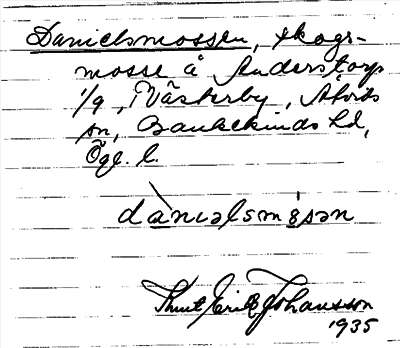 Danielsmossen, skogs-
mosse å Anderstorp
1/9, Västerby, Åtvids
sn, Bankekinds hd,
Ögl. l.
dànıəlsmåsən
Knut Erik Johansson
1935